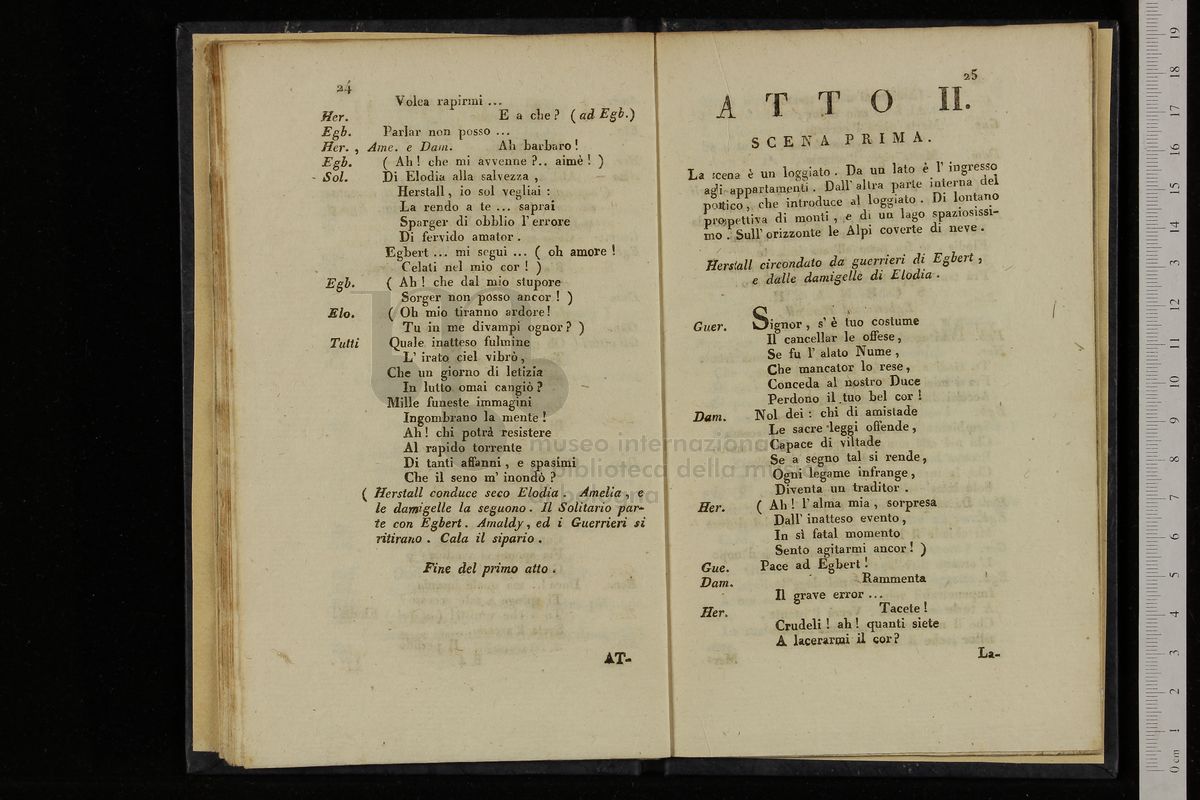 24
Volea rapirmi ...
Her. E a che? ( ad Egb.)
Egb. Parlar non posso ...
Her. , Ame. e Dam. Ah barbaro!
Egb. ( Ah! che mi avvenne ?.. aimè! )
Sol. Di Elodia alla salvezza ,
Herstall , io sol vegliai :
La rendo a te ... saprai
Sparger di obblio l'errore
Di fervido amator .
Egbert ... mi segui ... ( oh amore !
Celati nel mio cor ! )
Egb. ( Ah ! che dal mio stupore
Sorger non posso ancor ! )
Elo. ( Oh mio tiranno ardore!
Tu in me divampi ognor ? )
Tutti Quale inatteso fulmine
L' irato ciel vibrò ,
Che un giorno di letizia
In lutto omai cangiò ?
Mille funeste immagini
Ingombrano la mente !
Ah! chi potrà resistere
Al rapido torrente
Di tanti affanni , e spasimi
Che il seno m' inondò ?
( Herstall conduce seco Elodia . Amelia , e
le damigelle la seguono . Il Solitario par-
te con Egbert . Amaldy , ed i Guerrieri si
ritirano . Cala il sipario .
Fine del primo atto .
AT-
25
ATTO II.
SCENA PRIMA.
La scena è un loggiato . Da un lato è l' ingresso
agli appartamenti . Dall' altra parte interna del
portico , che introduce al loggiato . Di lontano
prospettiva di monti , e di un lago spaziosissi-
mo . Sull' orizzonte le Alpi coverte di neve .
Herstall circondato da guerrieri di Egbert ,
e dalle damigelle di Elodia .
Guer. Signor , s' è tuo costume
Il cancellar le offese ,
Se fu l' alato Nume ,
Che mancator lo rese ,
Conceda al nostro Duce
Perdono il tuo bel cor !
Dam. Nol dei : chi di amistade
Le sacre leggi offende ,
Capace di viltade
Se a segno tal si rende ,
Ogni legame infrange ,
Diventa un traditor .
Her. ( Ah ! l' alma mia , sorpresa
Dall' inatteso evento ,
In sì fatal momento
Sento agitarmi ancor ! )
Gue. Pace ad Egbert !
Dam. Rammenta
Il grave error ...
Her. Tacete !
Crudeli ! ah ! quanti siete
A lacerarmi il cor?
La-
museo internazionale
biblioteca della musica
bologna
0 cm 1 2 3 4 5 6 7 8 9 10 11 12 13 14 15 16 17 18 19